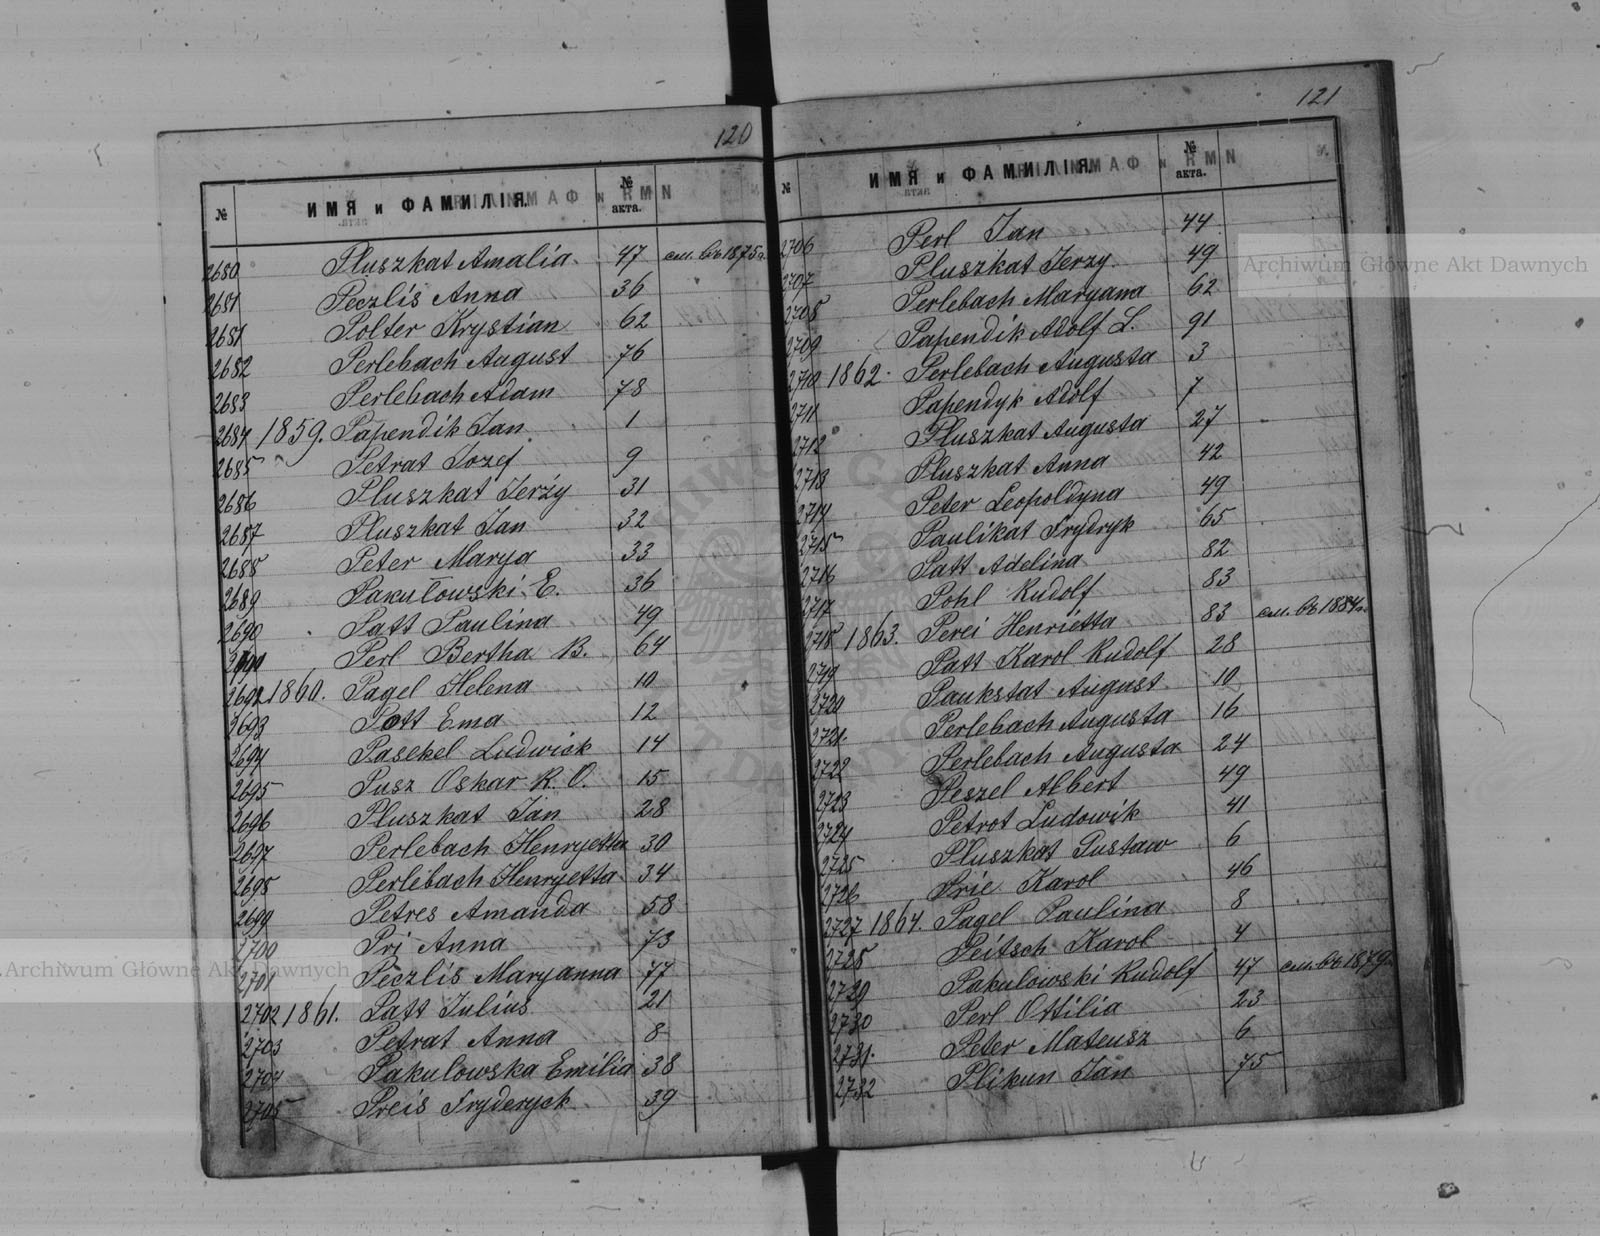 120
№ ИМЯ и ФАМИЛІЯ. № акта.
2680 Pluszkat Amalia 47 см. въ 1875 г.
2681 Peczlis Anna 36
2681 Polter Krystian 62
2682 Perlebach August 76
2683 Perlebach Adam 78
2684 1859. Papendik Jan 1
2685 Petrat Jozef 9
2686 Pluszkat Jerży 31
2687 Pluszkat Jan 32
2688 Peter Marya 33
2689 Pakułowski E. 36
2690 Patt Paulina 49
2691 Perl Bertha B. 64
2692 1860. Pagel Helena 10
2693 Pott Ema 12
2694 Pasekel Ludwick 14
2695 Pusz Oskar R. O. 15
2696 Pluszkat Jan 28
2697 Perlebach Henryetta 30
2698 Perlebach Henryetta 34
2699 Petres Amanda 58
2700 Pri Anna 73
2701 Peczlis Maryanna 77
2702 1861. Patt Julius 21
2703 Petrat Anna 8
2704 Pakulowska Emilia 38
2705 Preis Fryderyck 39
121
№ ИМЯ и ФАМИЛІЯ. № акта.
2706 Perl Jan 44
2707 Pluszkat Jerzy 49
2708 Perlebach Maryana 62
2709 Papendik Adolf L. 91
2710 1862. Perlebach Augusta 3
2711 Papendyk Adolf 7
2712 Pluszkat Augusta 27
2713 Pluszkat Anna 42
2714 Peter Leopoldyna 49
2715 Paulikat Frydryk 65
2716 Patt Adelina 82
2717 Pohl Rudolf 83
2718 1863. Perei Henrietta 83 см. въ 1884 г.
2719 Patt Karol Rudolf 28
2720 Paukstat August 10
2721. Perlebach Augusta 16
2722 Perlebach Augusta 24
2723 Peszel Albert 49
2724 Petrot Ludowik 41
2725 Pluszkat Gustaw 6
2726 Prie Karol 46
2727 1864. Pagel Paulina 8
2728 Peitsch Karol 4
2729 Pakulowski Rudolf 47 см. въ 1879 г.
2730 Perl Ottilia 23
2731. Peter Mateusz 6
2732 Plikun Jan 75
Archiwum Główne Akt Dawnych
Archiwum Główne Akt Dawnych